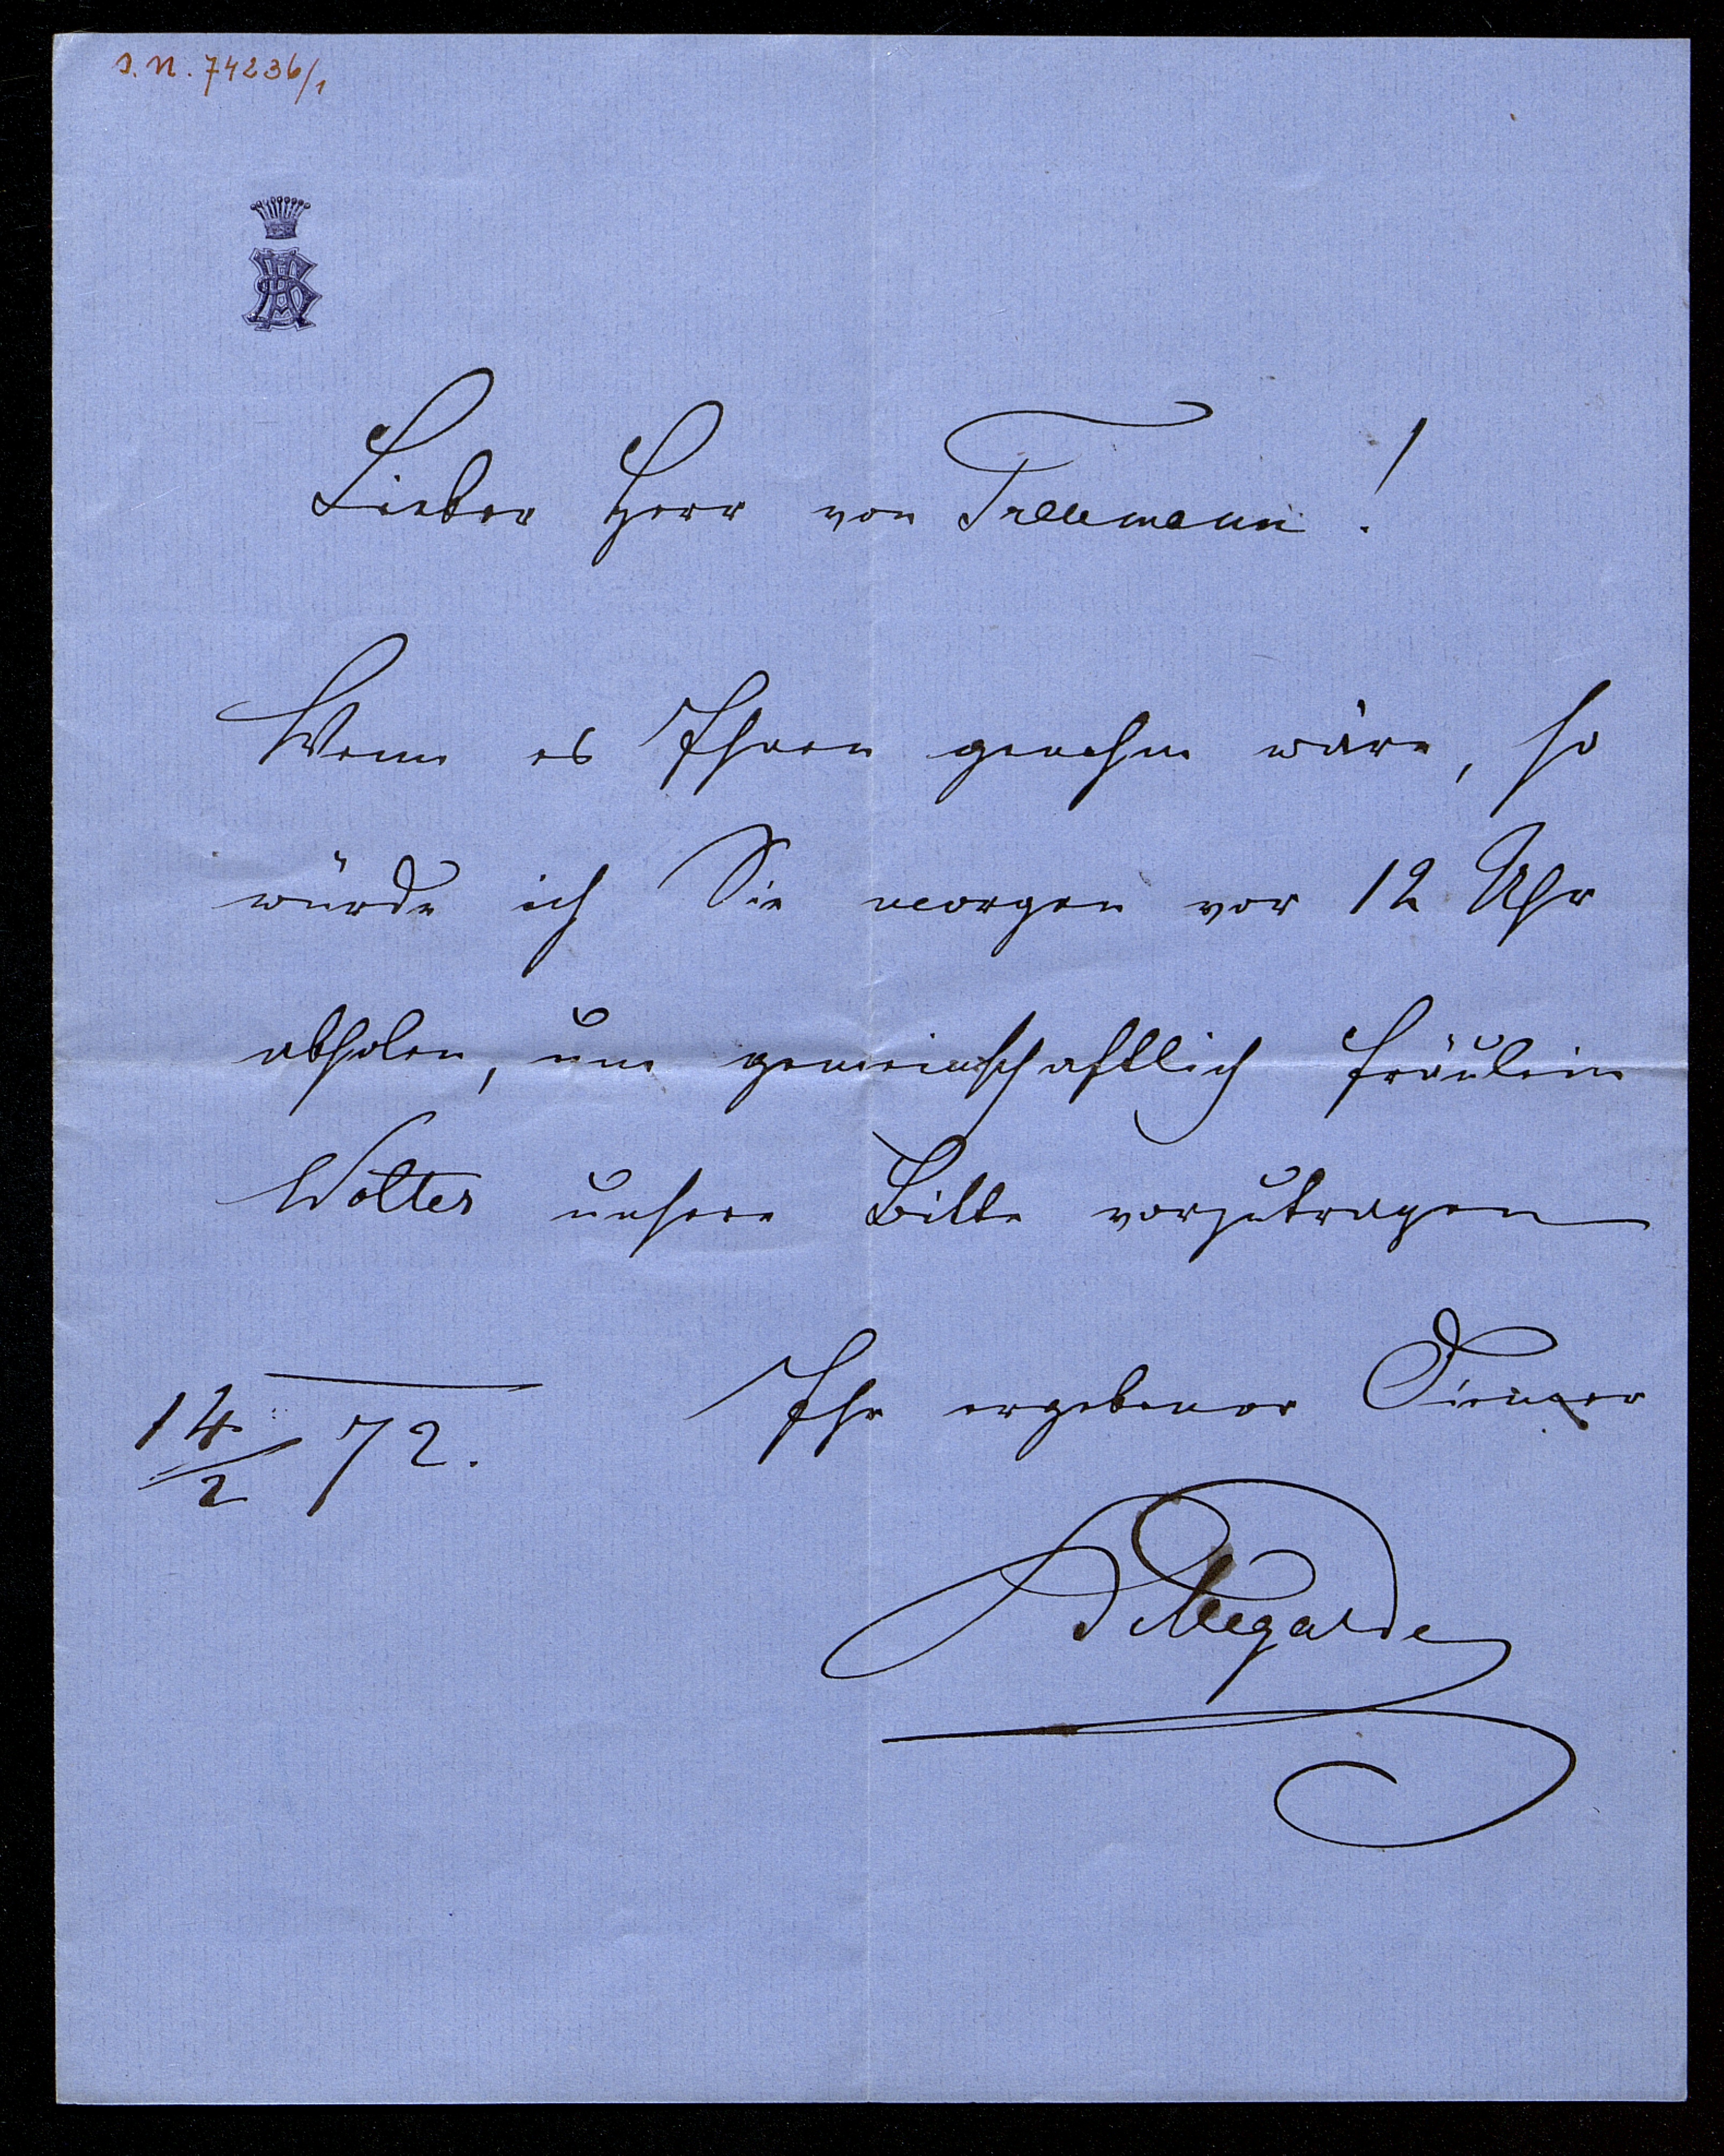 J. N. 74236/1
Lieber Herr von Trebmann!
Wenn es Ihnen genehm wäre, so
würde ich Sie morgen vor 12 Uhr
abholen, um gemeinschaftlich Fräulein
Wolter unsere Bitte vorzutragen
Ihr ergebener Diener
14/2 72.